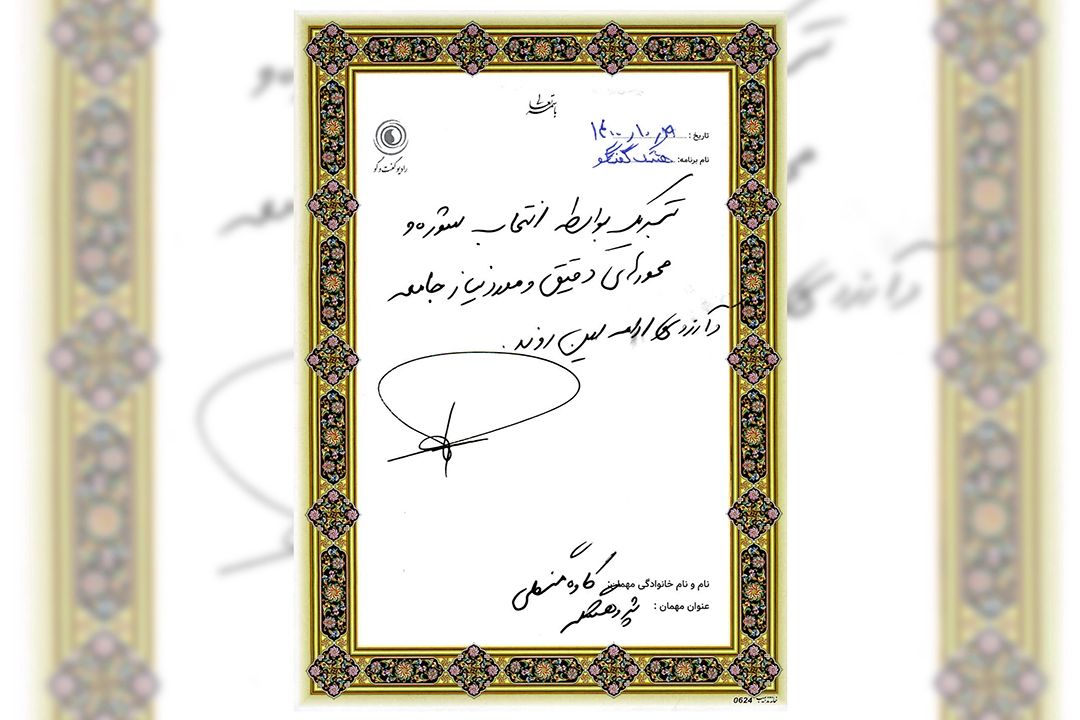 باسمه تعالی
رادیو گفت و گو
تاریخ :
نام برنامه: هشتگ گفتگو
تبریک بواسطه انتخاب سوژه و
محورهای دقیق و مورد نیاز جامعه
و آرزوی ادامه این روند.
نام و نام خانوادگی مهمان: کاوه
عنوان مهمان : پژوهشگر
0624